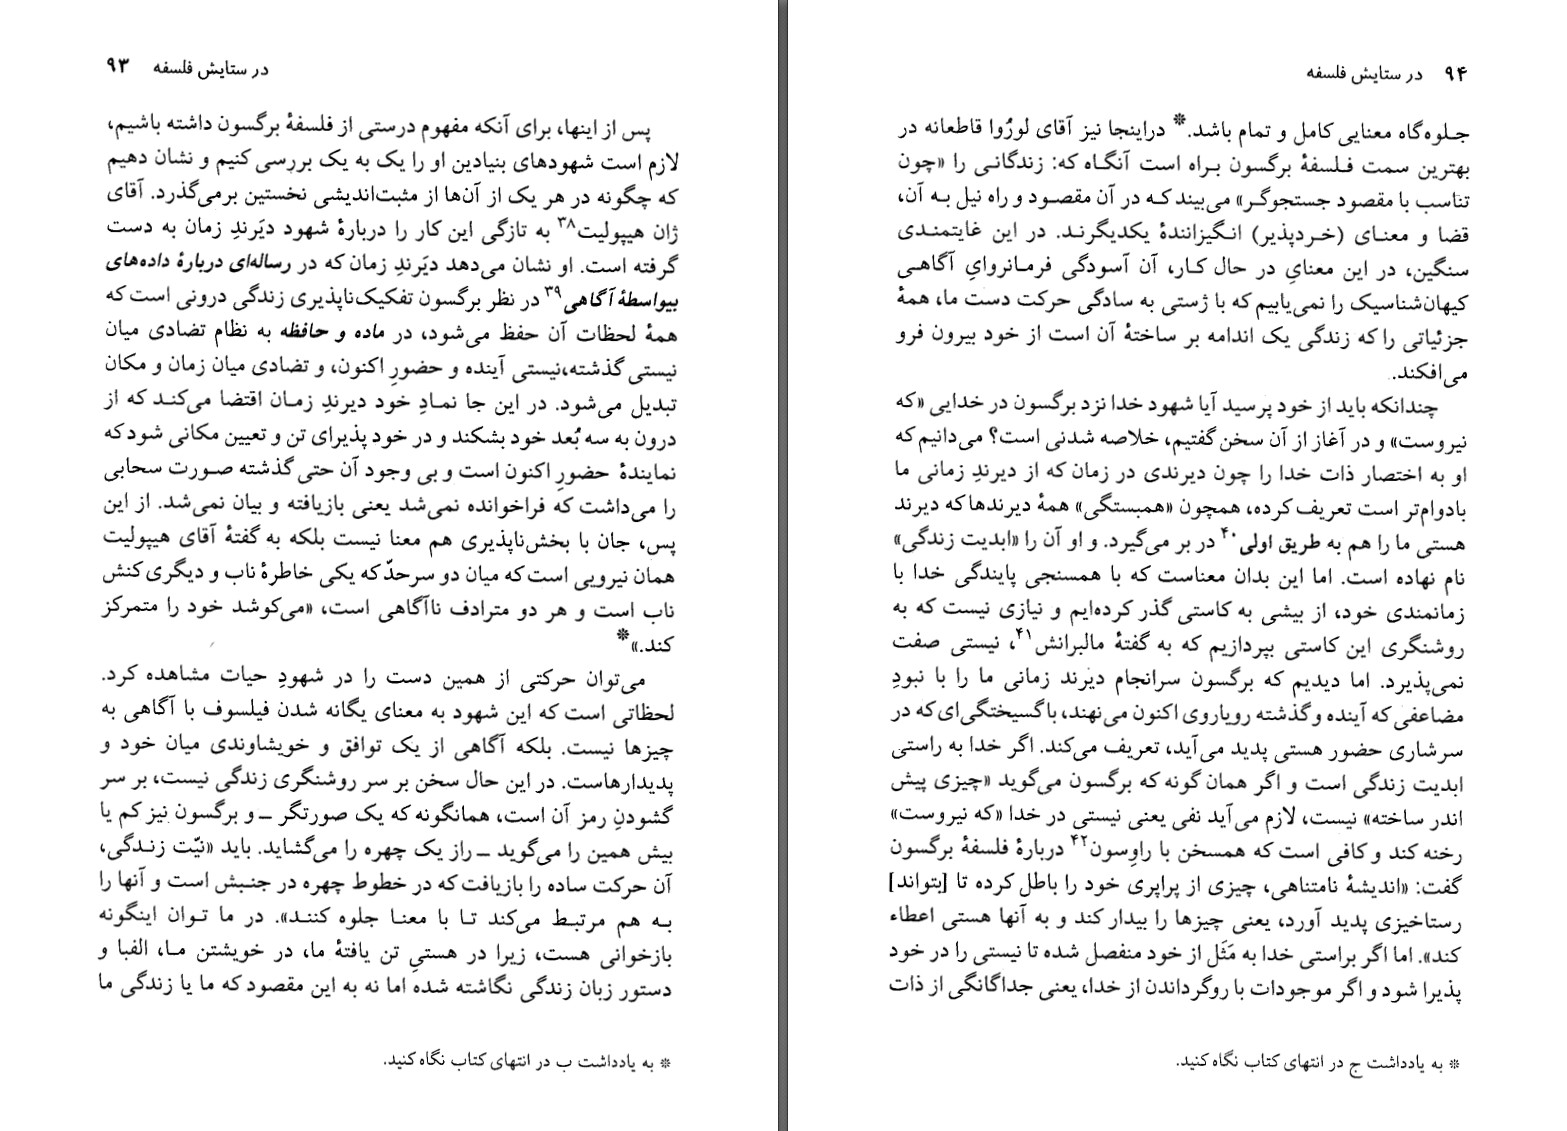 در ستایش فلسفه ۹۳
پس از اینها، برای آنکه مفهوم درستی از فلسفهٔ برگسون داشته باشیم،
لازم است شهودهای بنیادین او را یک به یک بررسی کنیم و نشان دهیم
که چگونه در هر یک از آن‌ها از مثبت‌اندیشی نخستین برمی‌گذرد. آقای
ژان هیپولیت۳۸ به تازگی این کار را دربارهٔ شهود دیَرندِ زمان به دست
گرفته است. او نشان می‌دهد دیَرندِ زمان که در رساله‌ای دربارهٔ داده‌های
بیواسطهٔ آگاهی۳۹ در نظر برگسون تفکیک‌ناپذیری زندگی درونی است که
همهٔ لحظات آن حفظ می‌شود، در ماده و حافظه به نظام تضادی میان
نیستی گذشته،نیستی آینده و حضورِ اکنون، و تضادی میان زمان و مکان
تبدیل می‌شود. در این جا نمادِ خود دیرندِ زمان اقتضا می‌کند که از
درون به سه بُعد خود بشکند و در خود پذیرای تن و تعیین مکانی شود که
نمایندهٔ حضورِ اکنون است و بی وجود آن حتی گذشته صورت سحابی
را می‌داشت که فراخوانده نمی‌شد یعنی بازیافته و بیان نمی‌شد. از این
پس، جان با بخش‌ناپذیری هم معنا نیست بلکه به گفتهٔ آقای هیپولیت
همان نیرویی است که میان دو سرحدّ که یکی خاطرهٔ ناب و دیگری کنش
ناب است و هر دو مترادف ناآگاهی است، «می‌کوشد خود را متمرکز
کند.»*
می‌توان حرکتی از همین دست را در شهودِ حیات مشاهده کرد.
لحظاتی است که این شهود به معنای یگانه شدن فیلسوف با آگاهی به
چیزها نیست. بلکه آگاهی از یک توافق و خویشاوندی میان خود و
پدیدارهاست. در این حال سخن بر سر روشنگری زندگی نیست، بر سر
گشودنِ رمز آن است، همانگونه که یک صورتگر ــ و برگسون نیز کم یا
بیش همین را می‌گوید ــ راز یک چهره را می‌گشاید. باید «نیّت زندگی،
آن حرکت ساده را بازیافت که در خطوط چهره در جنبش است و آنها را
به هم مرتبط می‌کند تا با معنا جلوه کنند». در ما توان اینگونه
بازخوانی هست، زیرا در هستیِ تن یافتهٔ ما، در خویشتن ما، الفبا و
دستور زبان زندگی نگاشته شده اما نه به این مقصود که ما یا زندگی ما
* به یادداشت ب در انتهای کتاب نگاه کنید.
۹۴ در ستایش فلسفه
جلوه‌گاه معنایی کامل و تمام باشد.* دراینجا نیز آقای لورُوا قاطعانه در
بهترین سمت فلسفهٔ برگسون براه است آنگاه که: زندگانی را «چون
تناسب با مقصود جستجوگر» می‌بیند که در آن مقصود و راه نیل به آن،
قضا و معنای (خردپذیر) انگیزانندهٔ یکدیگرند. در این غایتمندی
سنگین، در این معنایِ در حال کار، آن آسودگی فرمانروایِ آگاهی
کیهان‌شناسیک را نمی‌یابیم که با ژستی به سادگی حرکت دست ما، همهٔ
جزئیاتی را که زندگی یک اندامه بر ساختهٔ آن است از خود بیرون فرو
می‌افکند.
چندانکه باید از خود پرسید آیا شهود خدا نزد برگسون در خدایی «که
نیروست» و در آغاز از آن سخن گفتیم، خلاصه شدنی است؟ می‌دانیم که
او به اختصار ذات خدا را چون دیرندی در زمان که از دیرندِ زمانی ما
بادوام‌تر است تعریف کرده، همچون «همبستگی» همهٔ دیرندها که دیرند
هستی ما را هم به طریق اولی۴۰ در بر می‌گیرد. و او آن را «ابدیت زندگی»
نام نهاده است. اما این بدان معناست که با همسنجی پایندگی خدا با
زمانمندی خود، از بیشی به کاستی گذر کرده‌ایم و نیازی نیست که به
روشنگری این کاستی بپردازیم که به گفتهٔ مالبرانش۴۱، نیستی صفت
نمی‌پذیرد. اما دیدیم که برگسون سرانجام دیَرند زمانی ما را با نبودِ
مضاعفی که آینده و گذشته رویاروی اکنون می‌نهند، با گسیختگی‌ای که در
سرشاری حضور هستی پدید می‌آید، تعریف می‌کند. اگر خدا به راستی
ابدیت زندگی است و اگر همان گونه که برگسون می‌گوید «چیزی پیش
اندر ساخته» نیست، لازم می‌آید نفی یعنی نیستی در خدا «که نیروست»
رخنه کند و کافی است که همسخن با راوِسون۴۲ دربارهٔ فلسفهٔ برگسون
گفت: «اندیشهٔ نامتناهی، چیزی از پراپری خود را باطل کرده تا [بتواند]
رستاخیزی پدید آورد، یعنی چیزها را بیدار کند و به آنها هستی اعطاء
کند». اما اگر براستی خدا به مَثَل از خود منفصل شده تا نیستی را در خود
پذیرا شود و اگر موجودات با روگرداندن از خدا، یعنی جداگانگی از ذات
* به یادداشت ج در انتهای کتاب نگاه کنید.